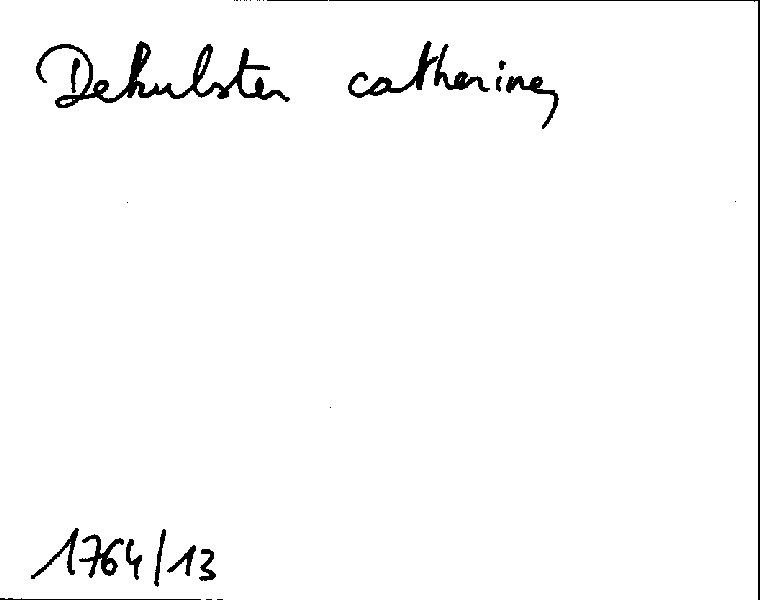 Dehulster catherine,
1764/13